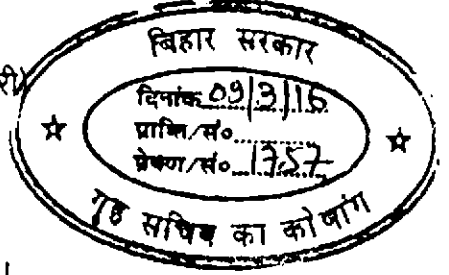 री)
बिहार सरकार
दिनांक 09/3/16
प्राप्ति/सं०
प्रेषण/सं० 1757
गृह सचिव का कोषांग